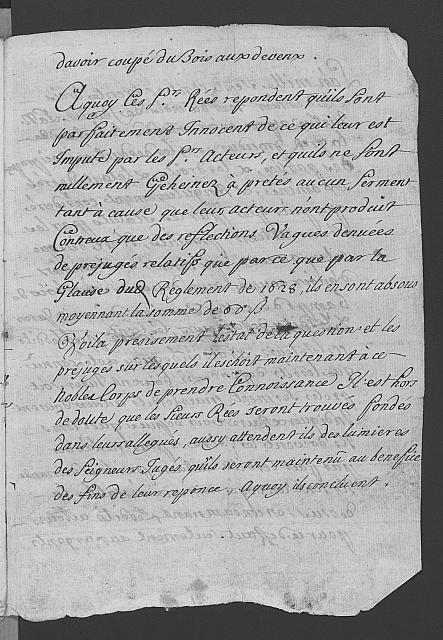 davoir coupé du Bois aux devenx.
A quoy les Srs Rées repondent qu'ils sont
parfaitement Innocent de ce qui leur est
Imputé par les Srs Acteurs, et qu'ils ne sont
nullement Geheinez à pretés aucun serment
tant à cause que leurs acteurs n'ont produit
Contreux que des reflections Vagues denuées
de préjugés relatifs que par ce que par la
Glause dud Reglement de 1628, ils en sont absous
moyennant la somme de 60 ß
Voila presisement l'estat de la question et les
préjugés sur lesquels il eschoit maintenant à ce
nobles Corps de prendre Connoissance Il est hors
de doute que les sieurs Rées seront trouvés fondés
dans leurs allegués, aussy attendent ils des lumieres
des Seigneurs Jugés qu'ils seront maintenû au benefice
des fins de leur reponce, A quoy ils concluent.